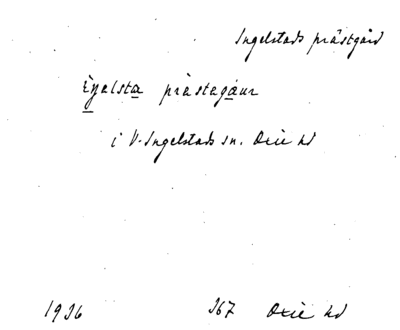 Ingelstads prästgård
È̱ŋalsta̱ pràstaga̱ur
i V. Ingelstads sn. Oxie hd
1936 367 Oxie hd